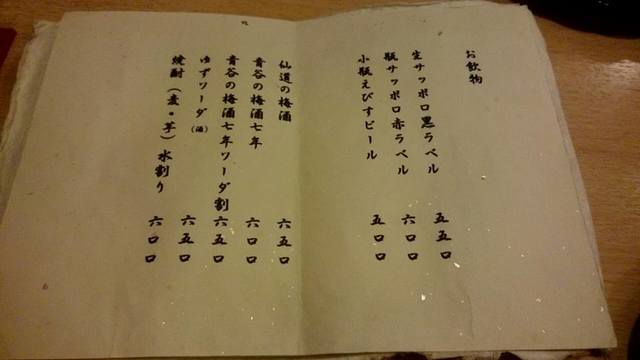 お飲物
生サッポロ黒ラベル 五五〇
瓶サッポロ赤ラベル 六〇〇
小瓶えびすビール 五〇〇
仙道の梅酒 六五〇
青谷の梅酒七年 六〇〇
青谷の梅酒七年ソーダ割 六五〇
ゆずソーダ(酒) 六五〇
焼酎(麦・芋)水割り 六〇〇